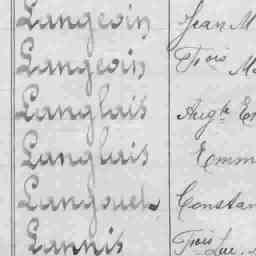 Langevin Jean M
Langevin Frois Ma
Langlais Augte Er
Langlais Emm
Langouet Constan
Lannis Frois Luc.